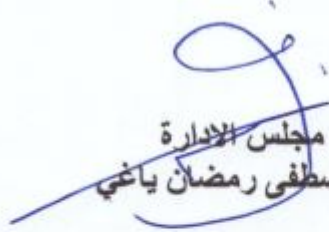 مجلس الادارة
رمضان ياغي